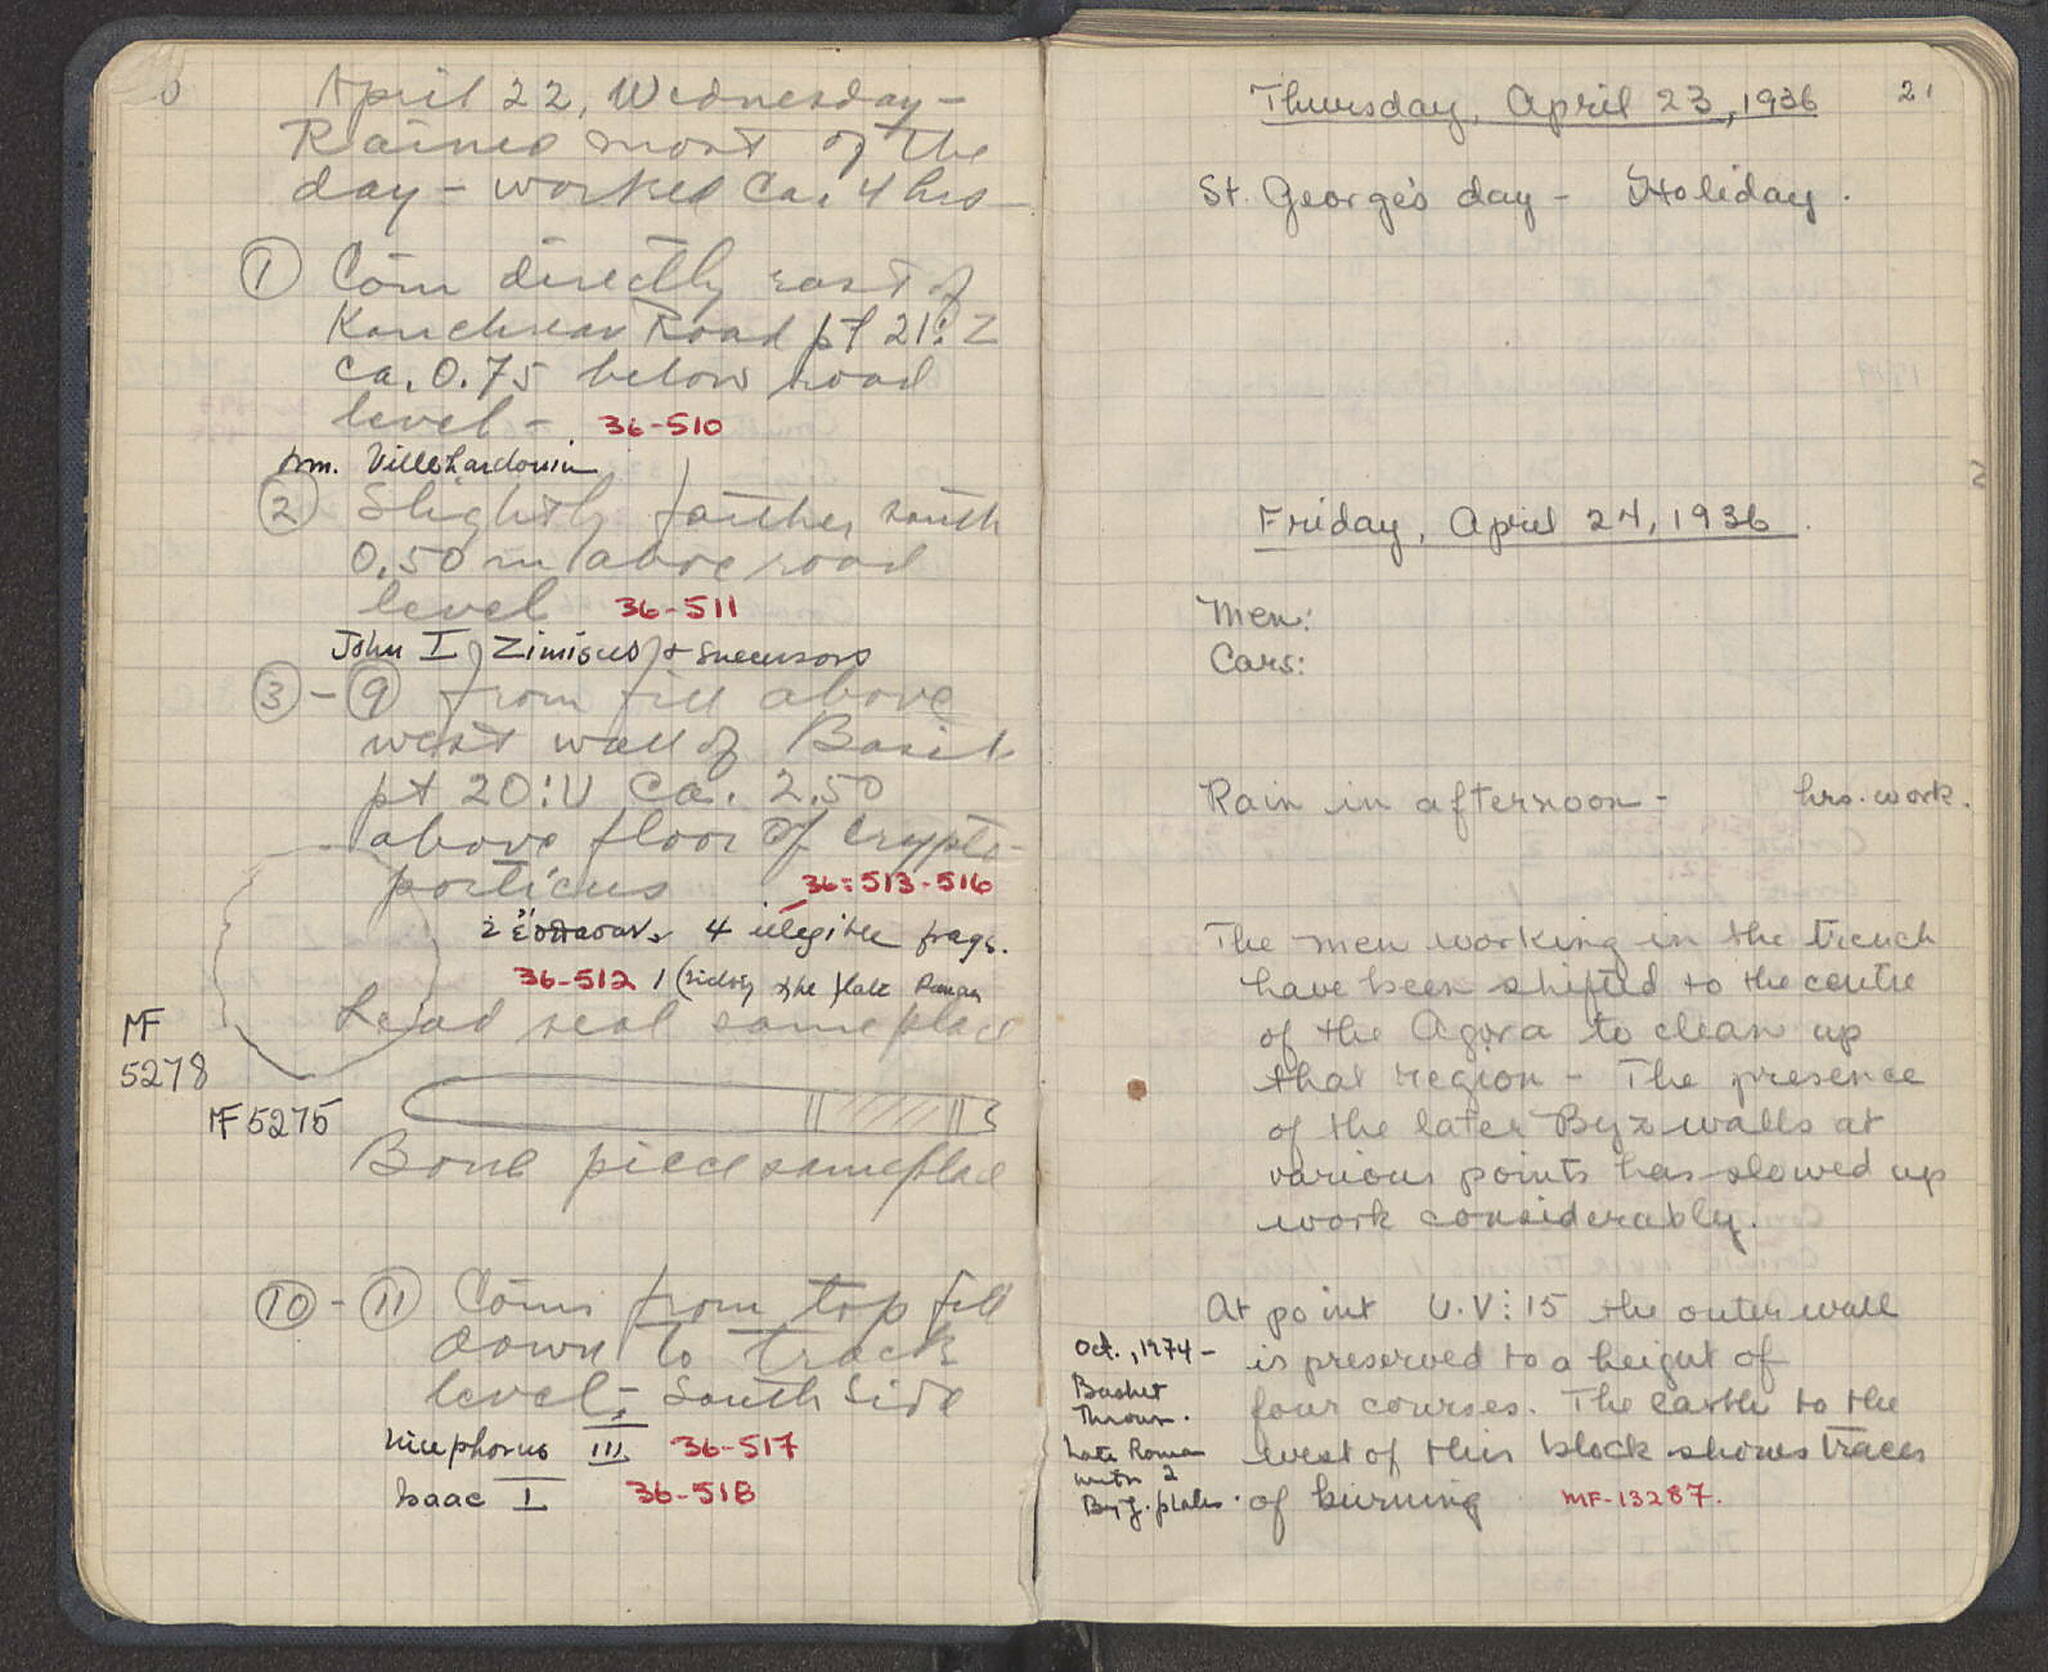 April 22, Wednesday –
Rained most of the
day – worked ca. 4 hrs –
① Coin directly east of
Road pt 21:Z
ca. 0.75 below road
level – 36-510
Wm. Villehardouin
② Slightly farther south
0.50 m above road
level 36-511
John I Zimisces + successors
③ – ⑨ from fill above
west wall of Basil.
pt 20:V ca. 2.50
above floor of Crypto-
porticus 36-513-516
2 4 illegible frags.
36-512 1 late Roman
Lead seal same place
MF
5278
MF 5275
Bone piece same place
⑩ – ⑪ Coins from top fill
down to track
level – South Side
Nicephorus III 36-517
Isaac I 36-518
21
Thursday, April 23, 1936
St. George's day – Holiday.
Friday, April 24, 1936.
Men:
Cars:
Rain in afternoon – hrs. work.
The men working in the trench
have been shifted to the centre
of the Agora to clean up
that region – The presence
of the later Byz walls at
various points has slowed up
work considerably.
At point U.V:15 the outer wall
is preserved to a height of
four courses. The earth to the
west of this block shows traces
of burning MF-13287.
Oct., 1974 –
Basket
Thrown.
Late Roman
with 2
Byz. plates.